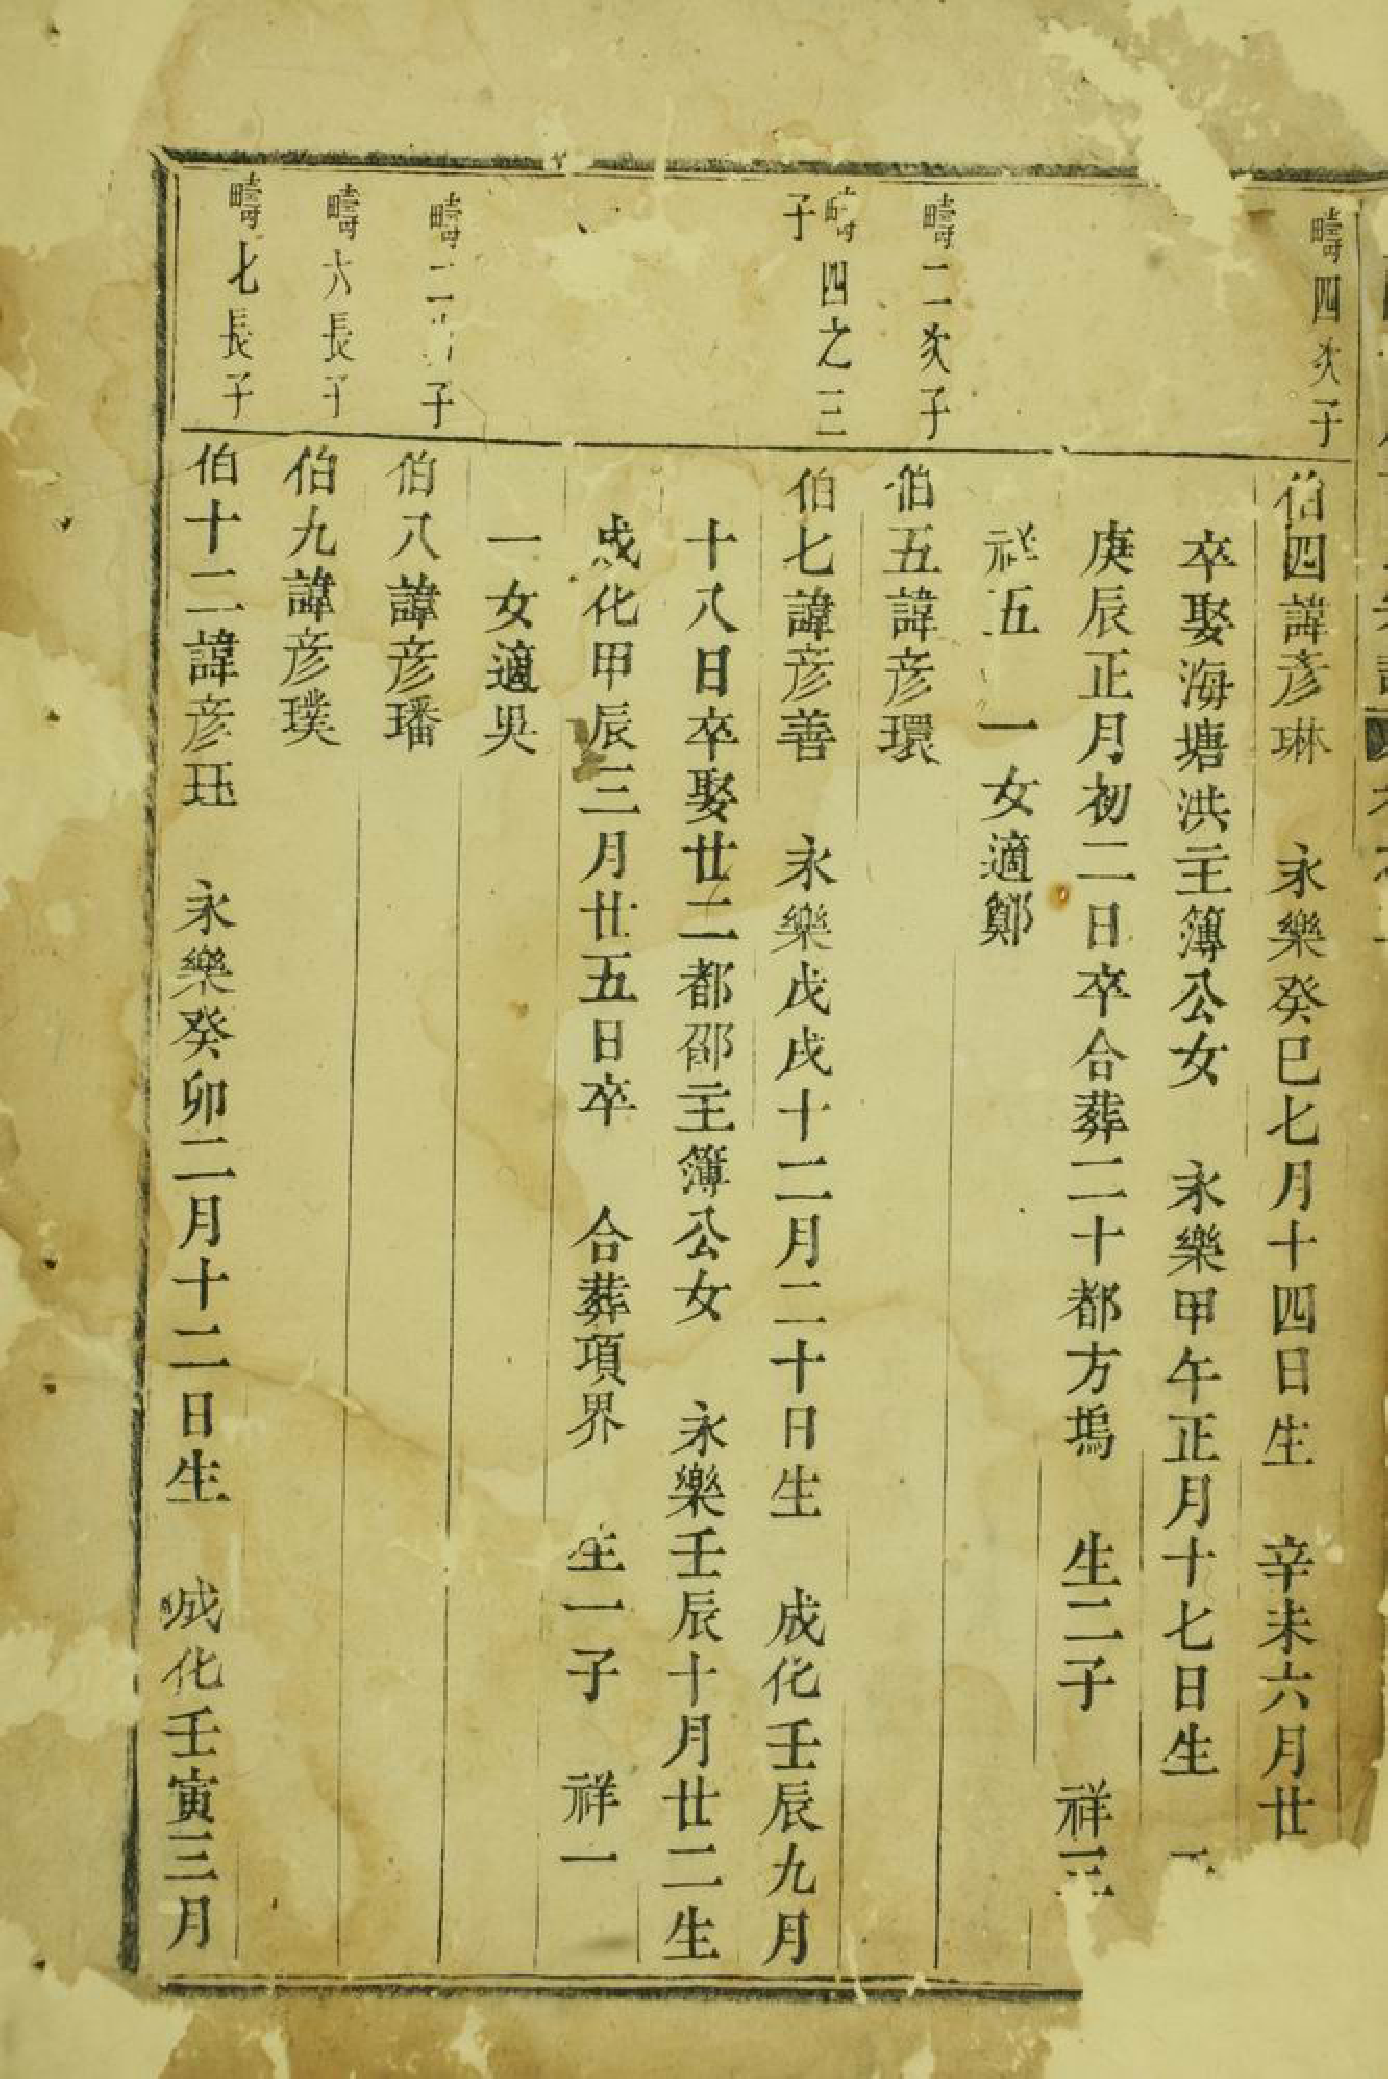 疇四次子
伯四諱彥琳 永樂癸巳七月十四日生 辛未六月廿
卒娶海塘洪主簿公女 永樂甲午正月十七日生
庚辰正月初二日卒合葬二十都方塢 生二子 祥三
祥五 一女適鄭
疇二次子
伯五諱彥環
疇四之三子
伯七諱彥善 永樂戊戌十二月二十日生 成化壬辰九月
十八日卒娶廿二都邵主簿公女 永樂壬辰十月廿二生
成化甲辰三月廿五日卒 合葬項界 生一子 祥一
一女適吳
疇二 子
伯八諱彥璠
疇六長子
伯九諱彥璞
疇七長子
伯十二諱彥珏 永樂癸卯二月十二日生 成化壬寅三月